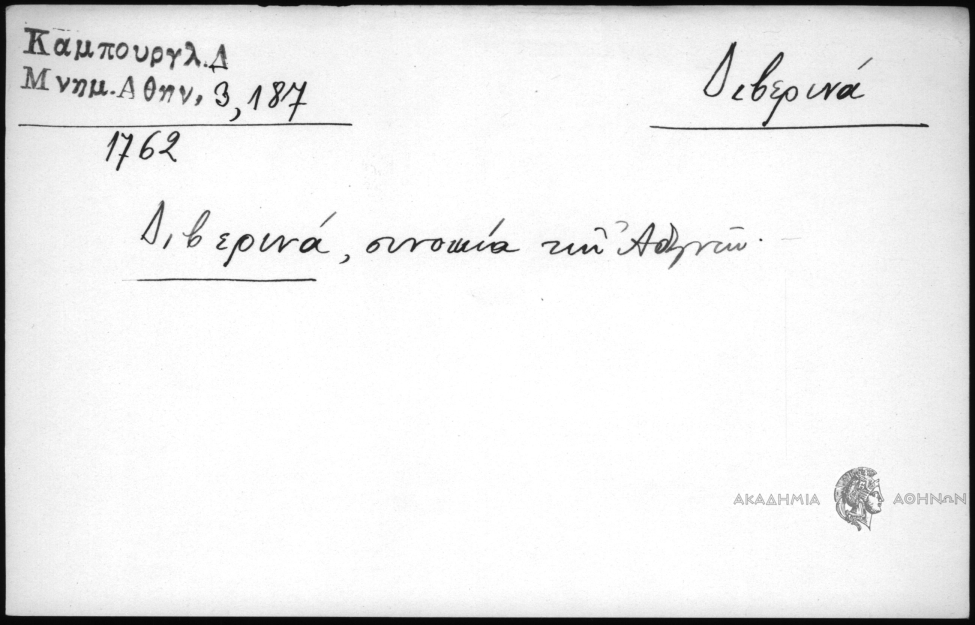 Καμπουργλ. Δ
Μνημ. Αθην, 3, 187
Διβερινά
1762
Διβερινά, συνοικία τῶν Ἀθηνῶν.
ΑΚΑΔΗΜΙΑ ΑΘΗΝΩΝ